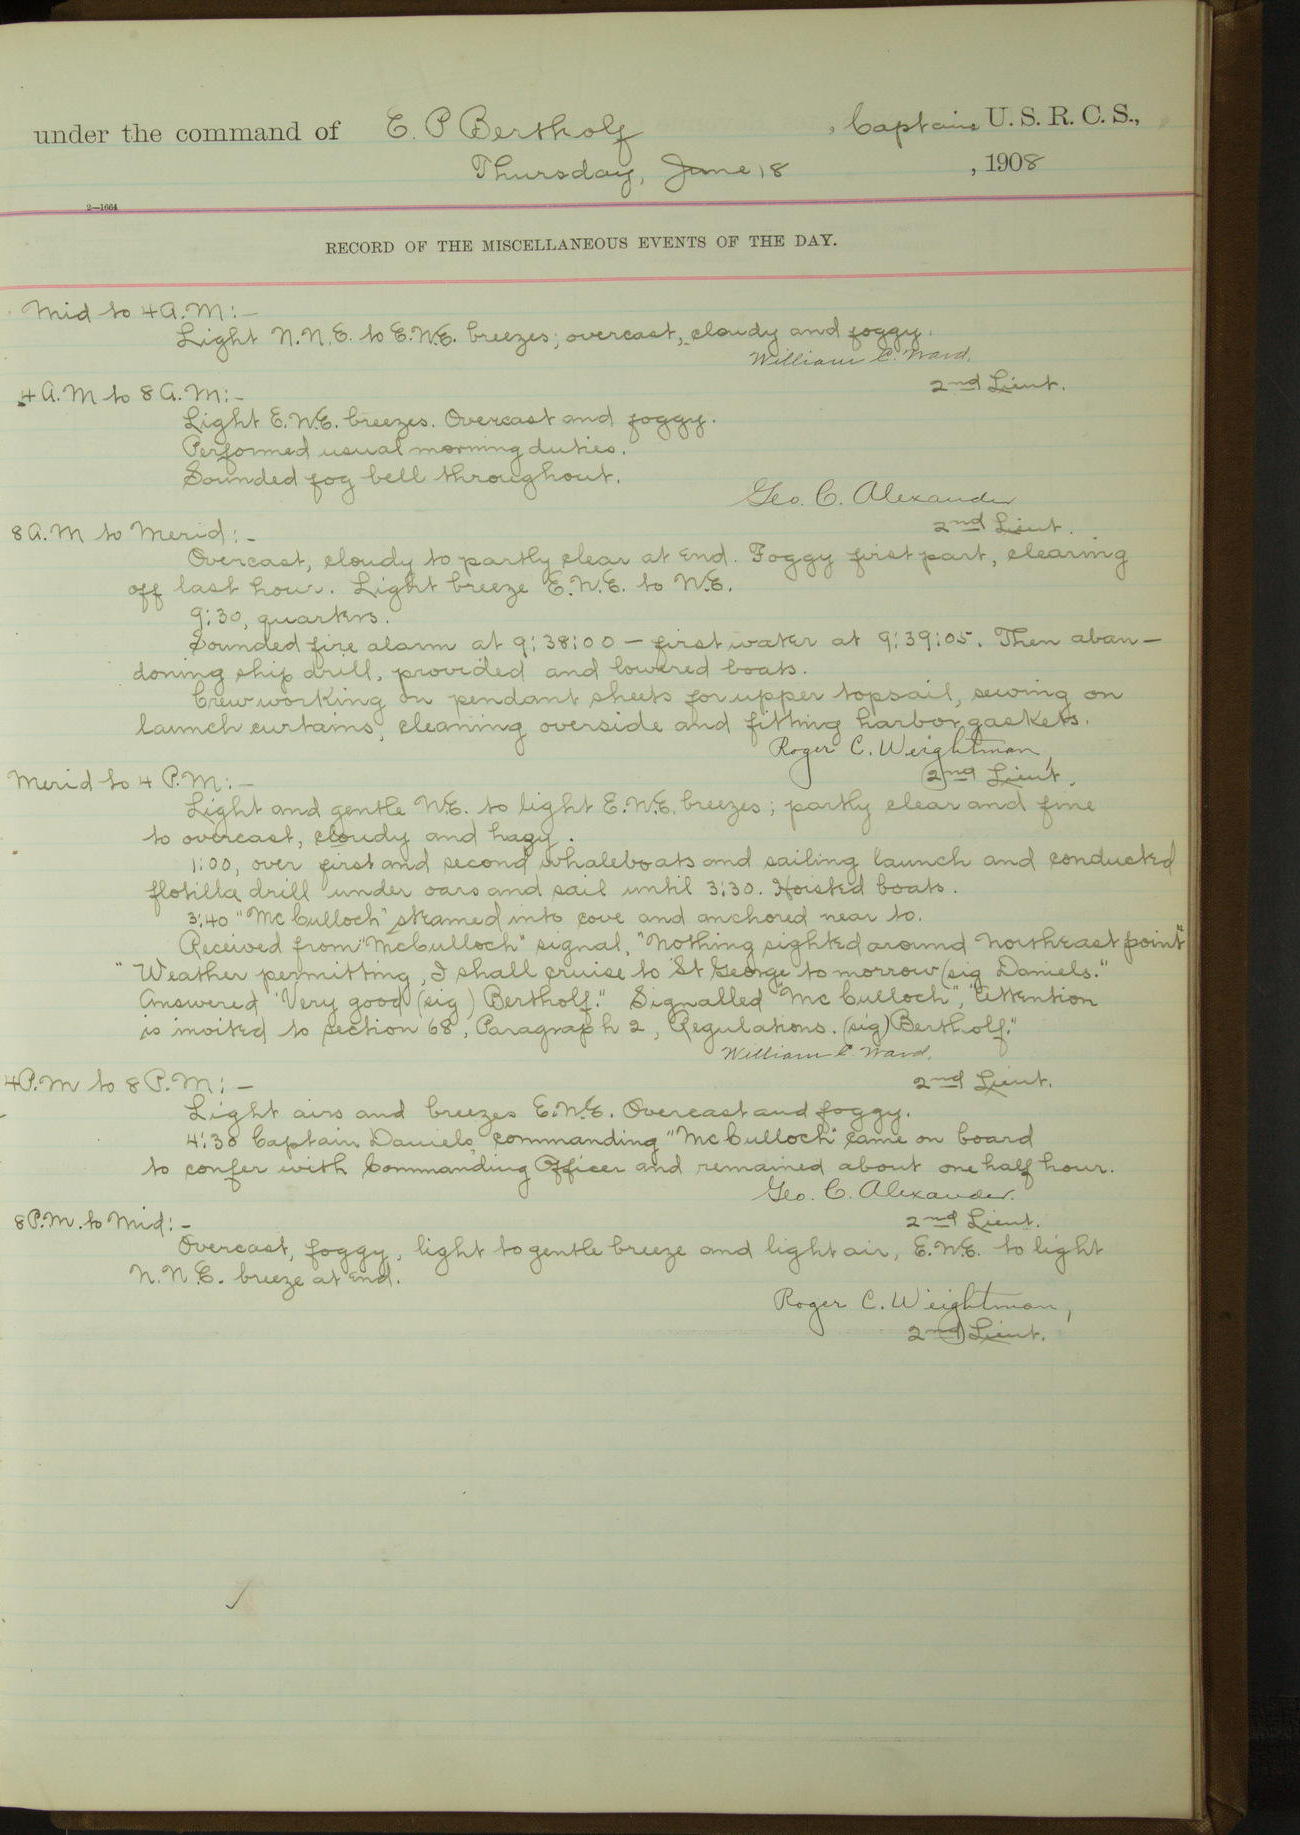 under the command of E. P Bertholf, Captain U. S. R. C. S.,
Thursday, June 18, 1908
2—1664
RECORD OF THE MISCELLANEOUS EVENTS OF THE DAY.
Mid to 4 A.M:—
Light N.N.E. to E.N.E. breezes; overcast, cloudy and foggy.
William C. Ward.
2nd Lieut.
4 A.M to 8 A.M:—
Light E.N.E. breezes. Overcast and foggy.
Performed usual morning duties.
Sounded fog bell throughout.
Geo. C. Alexander
2nd Lieut.
8 A.M to Merid:—
Overcast, cloudy to partly clear at end. Foggy first part, clearing
off last hour. Light breeze E.N.E. to N.E.
9:30, quarters.
Sounded fire alarm at 9:38:00 — first water at 9:39:05. Then aban—
doning ship drill, provided and lowered boats.
Crew working on pendant sheets for upper topsail, sewing on
launch curtains, cleaning overside and fitting harbor gaskets.
Roger C. Weightman,
2nd Lieut.
Merid to 4 P.M:—
Light and gentle N.E. to light E.N.E. breezes; partly clear and fine
to overcast, cloudy and hazy.
1:00, over first and second whaleboats and sailing launch and conducted
flotilla drill under oars and sail until 3:30. Hoisted boats.
3:40 "McCulloch" steamed into cove and anchored near to.
Received from "McCulloch" signal, "Nothing sighted around Northeast point"
"Weather permitting, I shall cruise to St George to morrow (sig Daniels."
Answered "Very good (sig) Bertholf." Signalled "McCulloch", "Attention
is invited to section 68, Paragraph 2, Regulations. (sig) Bertholf."
William C. Ward.
2nd Lieut.
4 P.M to 8 P.M:—
Light airs and breezes E.N.E. Overcast and foggy.
4:38 Captain Daniels, commanding "McCulloch" came on board
to confer with Commanding Officer and remained about one half hour.
Geo. C. Alexander.
2nd Lieut.
8 P.M. to Mid:—
Overcast, foggy, light to gentle breeze and light air, E.N.E. to light
N.N.E. breeze at end.
Roger C. Weightman,
2nd Lieut.